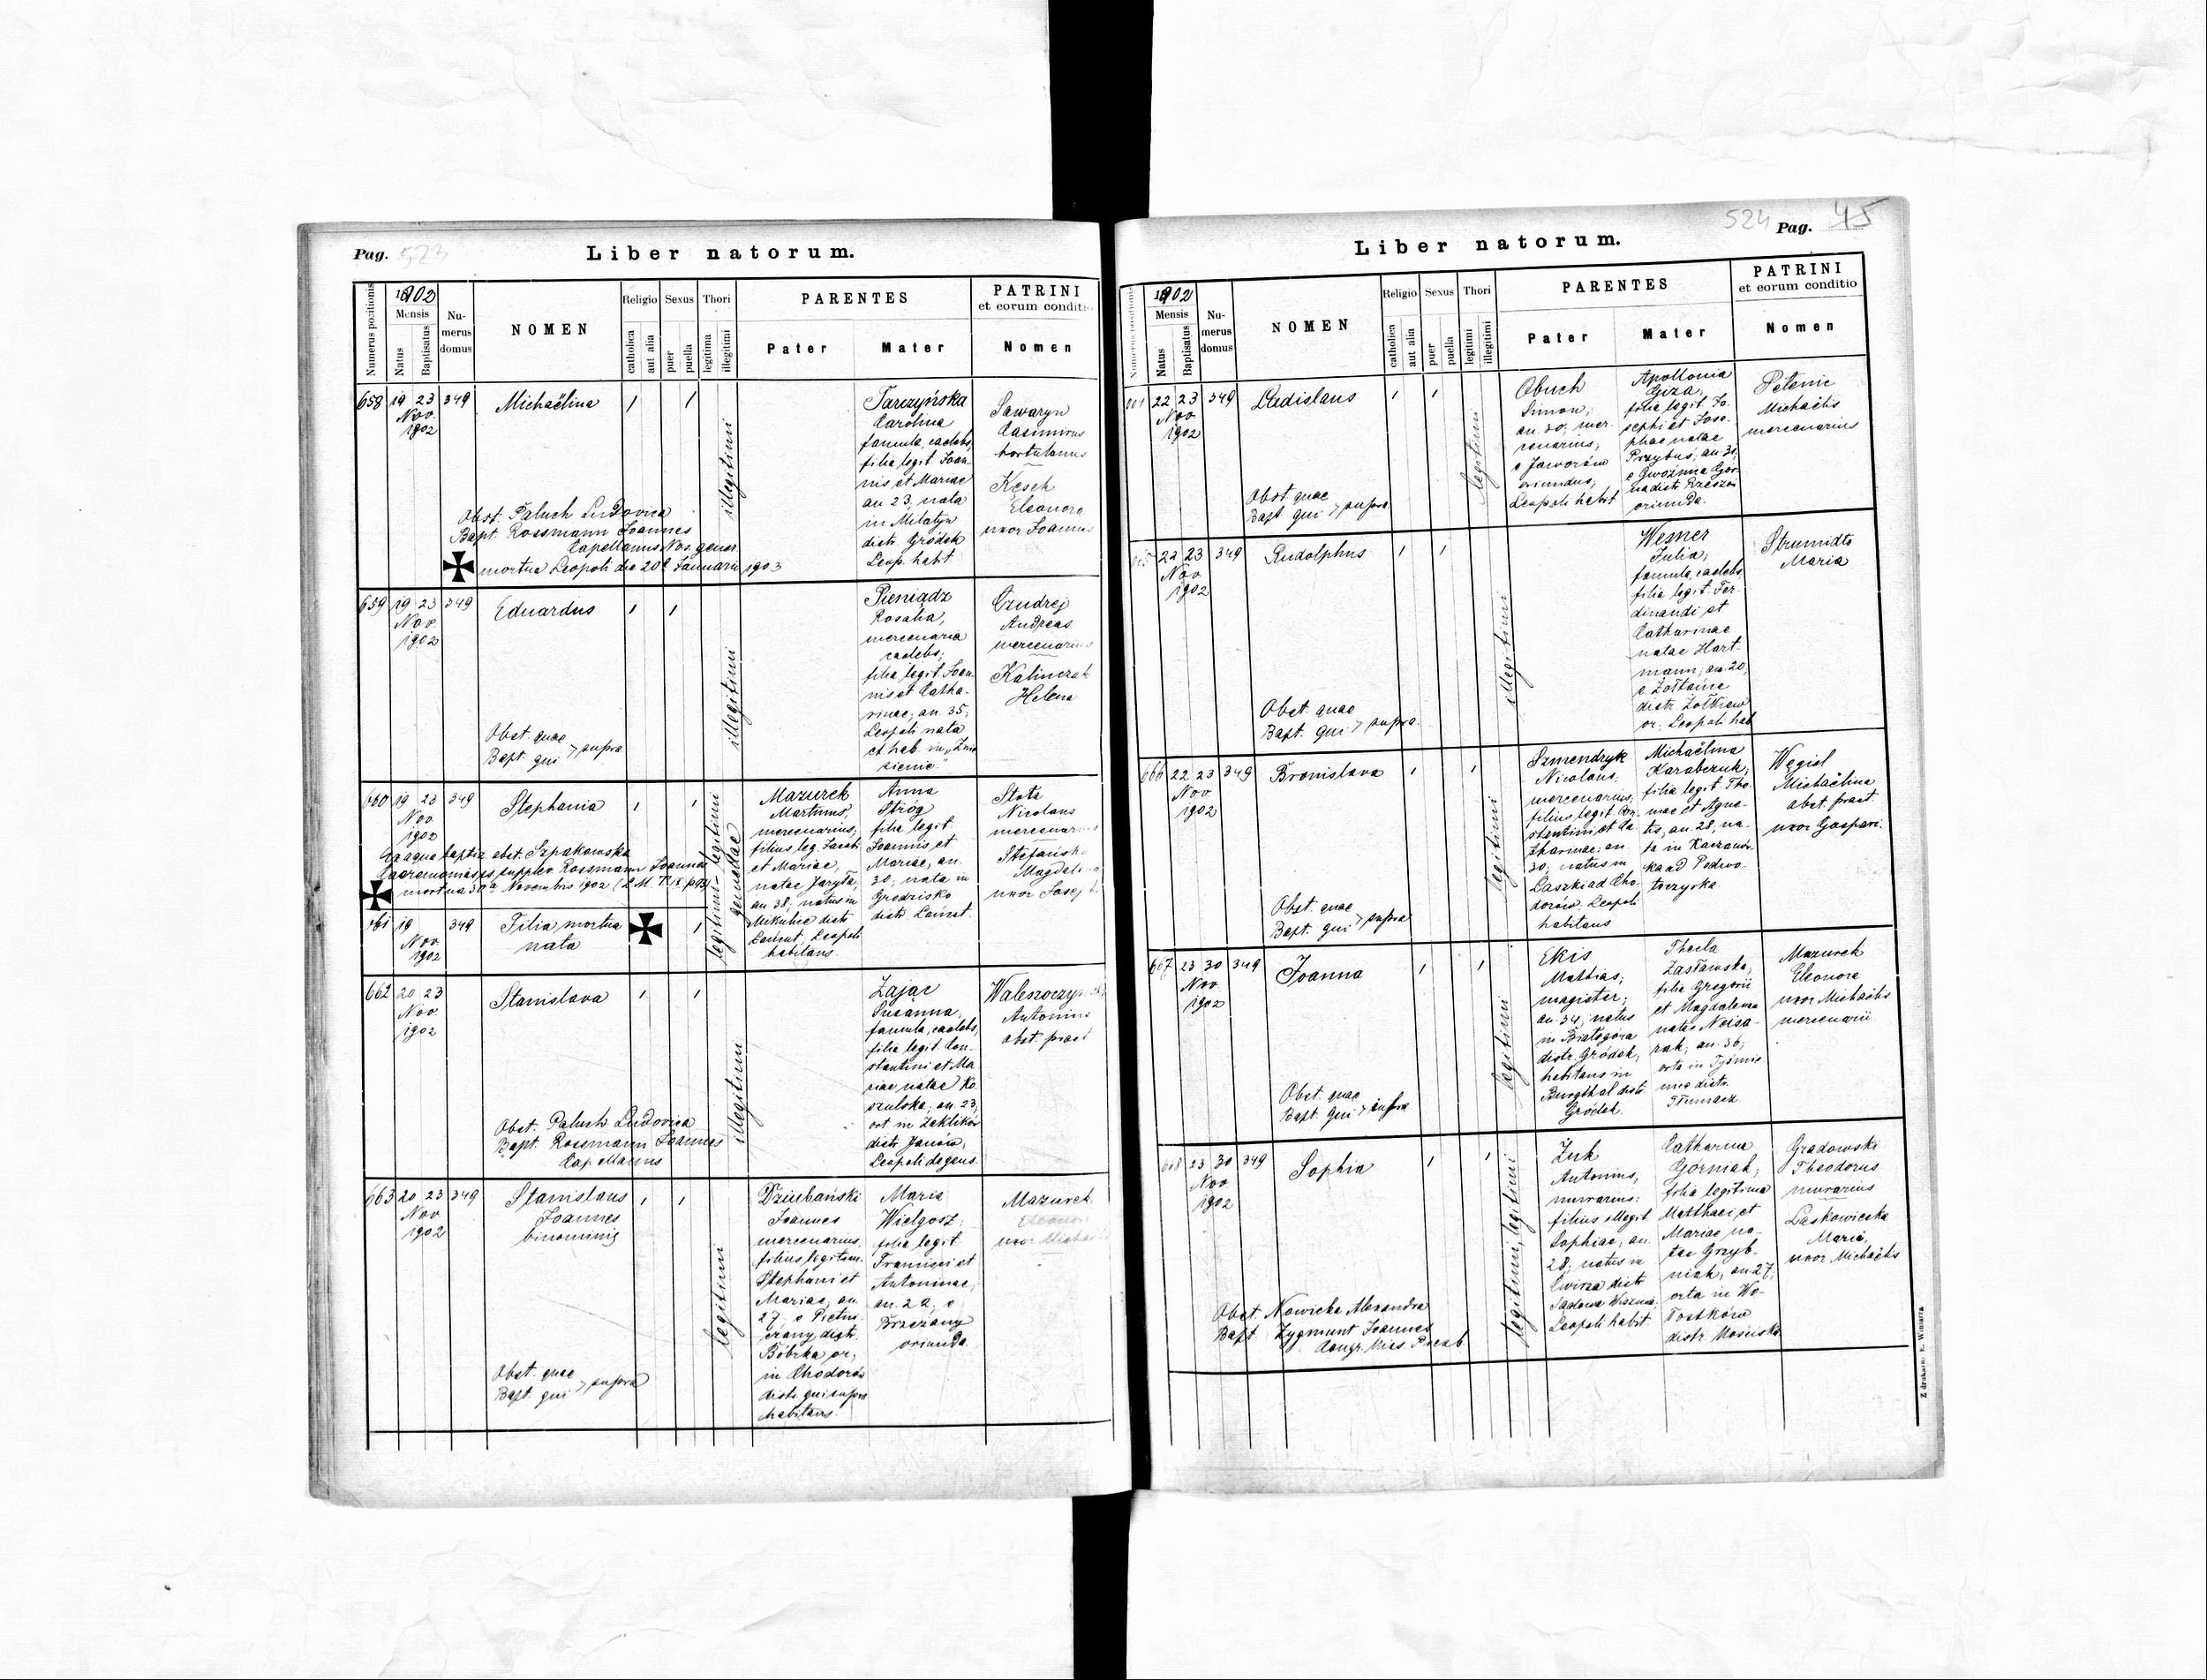 Pag. 523
Liber natorum.
Numerus positionis
1902
Mensis
Natus
Baptisatus
Numerus domus
NOMEN
Religio
catholica
aut alia
Sexus
puer
puella
Thori
legitima
illegitimi
PARENTES
Pater
Mater
PATRINI
et eorum conditio
Nomen
658 19 23 349 Michaëlina
Nov.
1902
illegitimi
Tarczyńska
Carolina
famula, caelebs,
filia legit. Joan-
nis et Mariae
an 23, nata
in Milatyn
distr. Gródek
Leop. habit.
Sawaryn
Casimirus
hortulanus
Kesch
Eleonora
uxor Joannis
Obst. Paluch Ludovica
Bapt. Rossmann Joannes
Capellanus Nos. gener.
mortua Leopoli die 20ª Januarii 1903
659 19 23 349 Eduardus
Nov.
1902
illegitimi
Pieniądz
Rosalia,
mercenaria
caelebs;
filia legit. Joan-
nis et Catha-
rinae; an. 35;
Leopoli nata
et hab. in „Znie
sienie."
Czudrej
Andreas
mercenarius
Kalinczak
Helena
Obst. quae
Bapt. qui > supra
660 19 23 349 Stephania
Nov.
1902
legitimi - legitimi
gemellae
Mazurek
Martinus,
mercenarius;
filius leg. Jacobi
et Mariae,
natae Jaryta,
an 38; natus in
Mikulice distr.
Łańcut, Leopoli
habitans.
Anna
Stróg
filia legit.
Joannis et
Mariae, an.
30; nata in
Grodzisko
distr. Łańcut.
Stota
Nicolaus
mercenarius
Stefańska
Magdalena
uxor Josephi
Ex aqua baptiz. obst. Szpakowska
Caeremonias supplev. Rossmann Joannes
mortua 30ª Novembris 1902 (L.M. T. IX. p. 93)
661 19 349 Filia mortua
Nov. nata
1902
662 20 23 Stanislava
Nov.
1902
illegitimi
Zając
Susanna,
famula, caelebs,
filia legit. Con-
stantini et Ma-
riae natae Ko-
szulska; an. 23;
ort. in Zaklików
distr. Janów,
Leopoli degens.
Antonina
obst. pract.
Obst. Paluch Ludovica
Bapt. Rossmann Joannes
Capellanus
663 20 23 349 Stanislaus
Nov Joannes
1902 binominis
legitimi
Dziubański
Joannes
mercenarius,
filius legitim.
Stephani et
Mariae, an.
27, e Pietni-
czany distr.
Bóbrka or.,
in Chodorów
distr. qui supra
habitans.
Maria
Wielgosz;
filia legit.
Francisci et
Antoninae,
an. 22, e
Brzeżany
oriunda.
Mazurek
Eleonora
uxor Michaëlis
Obst. quae
Bapt. qui > supra
524 Pag. 45
Liber natorum.
Numerus positionis
1902
Mensis
Natus
Baptisatus
Numerus domus
NOMEN
Religio
catholica
aut alia
Sexus
puer
puella
Thori
legitimi
illegitimi
PARENTES
Pater
Mater
PATRINI
et eorum conditio
Nomen
22 23 349 Ladislaus
Nov
1902
legitimi
Obuch
Simon,
an. 30; mer-
cenarius;
e Jaworów
oriundus;
Leopoli habit
Apollonia
Giza,
filia legit. Jo-
sephi et Jose-
phae natae
Przybuś, an. 31,
e Gwoźnica Gór-
na distr. Rzeszów
oriunda.
Petenic
Michaëlis
mercenarius
Obst. quae
Bapt. qui > supra
665 22 23 349 Rudolphus
Nov
1902
illegitimi
Wesner
Julia;
famula, caelebs,
filia legit. Fer-
dinandi et
Catharinae
natae Hart-
mann, an. 20,
e Żółtańce
distr. Żółkiew
or. Leopoli hab
Maria
Obst. quae
Bapt. qui > supra.
666 22 23 349 Bronislava
Nov
1902
legitimi
Szmendryk
Nicolaus,
mercenarius;
filius legit. Con-
stantini et Ca-
tharinae; an
30; natus in
Laszki ad Cho-
dorów, Leopoli
habitans
Michaëlina
Karabczuk;
filia legit. Tho-
mae et Agne-
tis, an. 28, na-
ta in Kaczanów-
ka ad Podwo-
łoczyska.
Węgiel
Michaëlina
obst. pract.
uxor Gaspari.
Obst. quae
Bapt. qui > supra
667 23 30 349 Joanna
Nov.
1902
legitimi
Ekis
Mathias;
magister;
an. 34; natus
in Białogóra
distr. Gródek,
habitans in
Burgthal distr.
Gródek.
Thecla
Zasławska,
filia Gregorii
et Magdalenae
natae Noisa-
rak; an. 36;
orta in Tyśmie-
nica distr.
Tłumacz.
Mazurek
Eleonora
uxor Michaëlis
mercenarii
Obst. quae
Bapt. qui > infra
668 23 30 349 Sophia
Nov
1902
legitimi, legitimi
Żuk
Antonius,
murarius:
filius illegit
Sophiae, an.
28, natus in
distr.
Sądowa Wisznia,
Leopoli habit.
Catharina
Górniak;
filia legitima
Matthaei et
Mariae na-
tae Grzyb-
niak, an 27;
orta in Wo-
łostków
distr. Mościska.
Gradowski
Theodorus
murarius
Laskowiecka
Maria,
uxor Michaëlis
Obst. Nowicka Alexandra
Bapt Zygmunt Joannes
Congr. Miss. Presb.
Z drukarni E. Winiarza